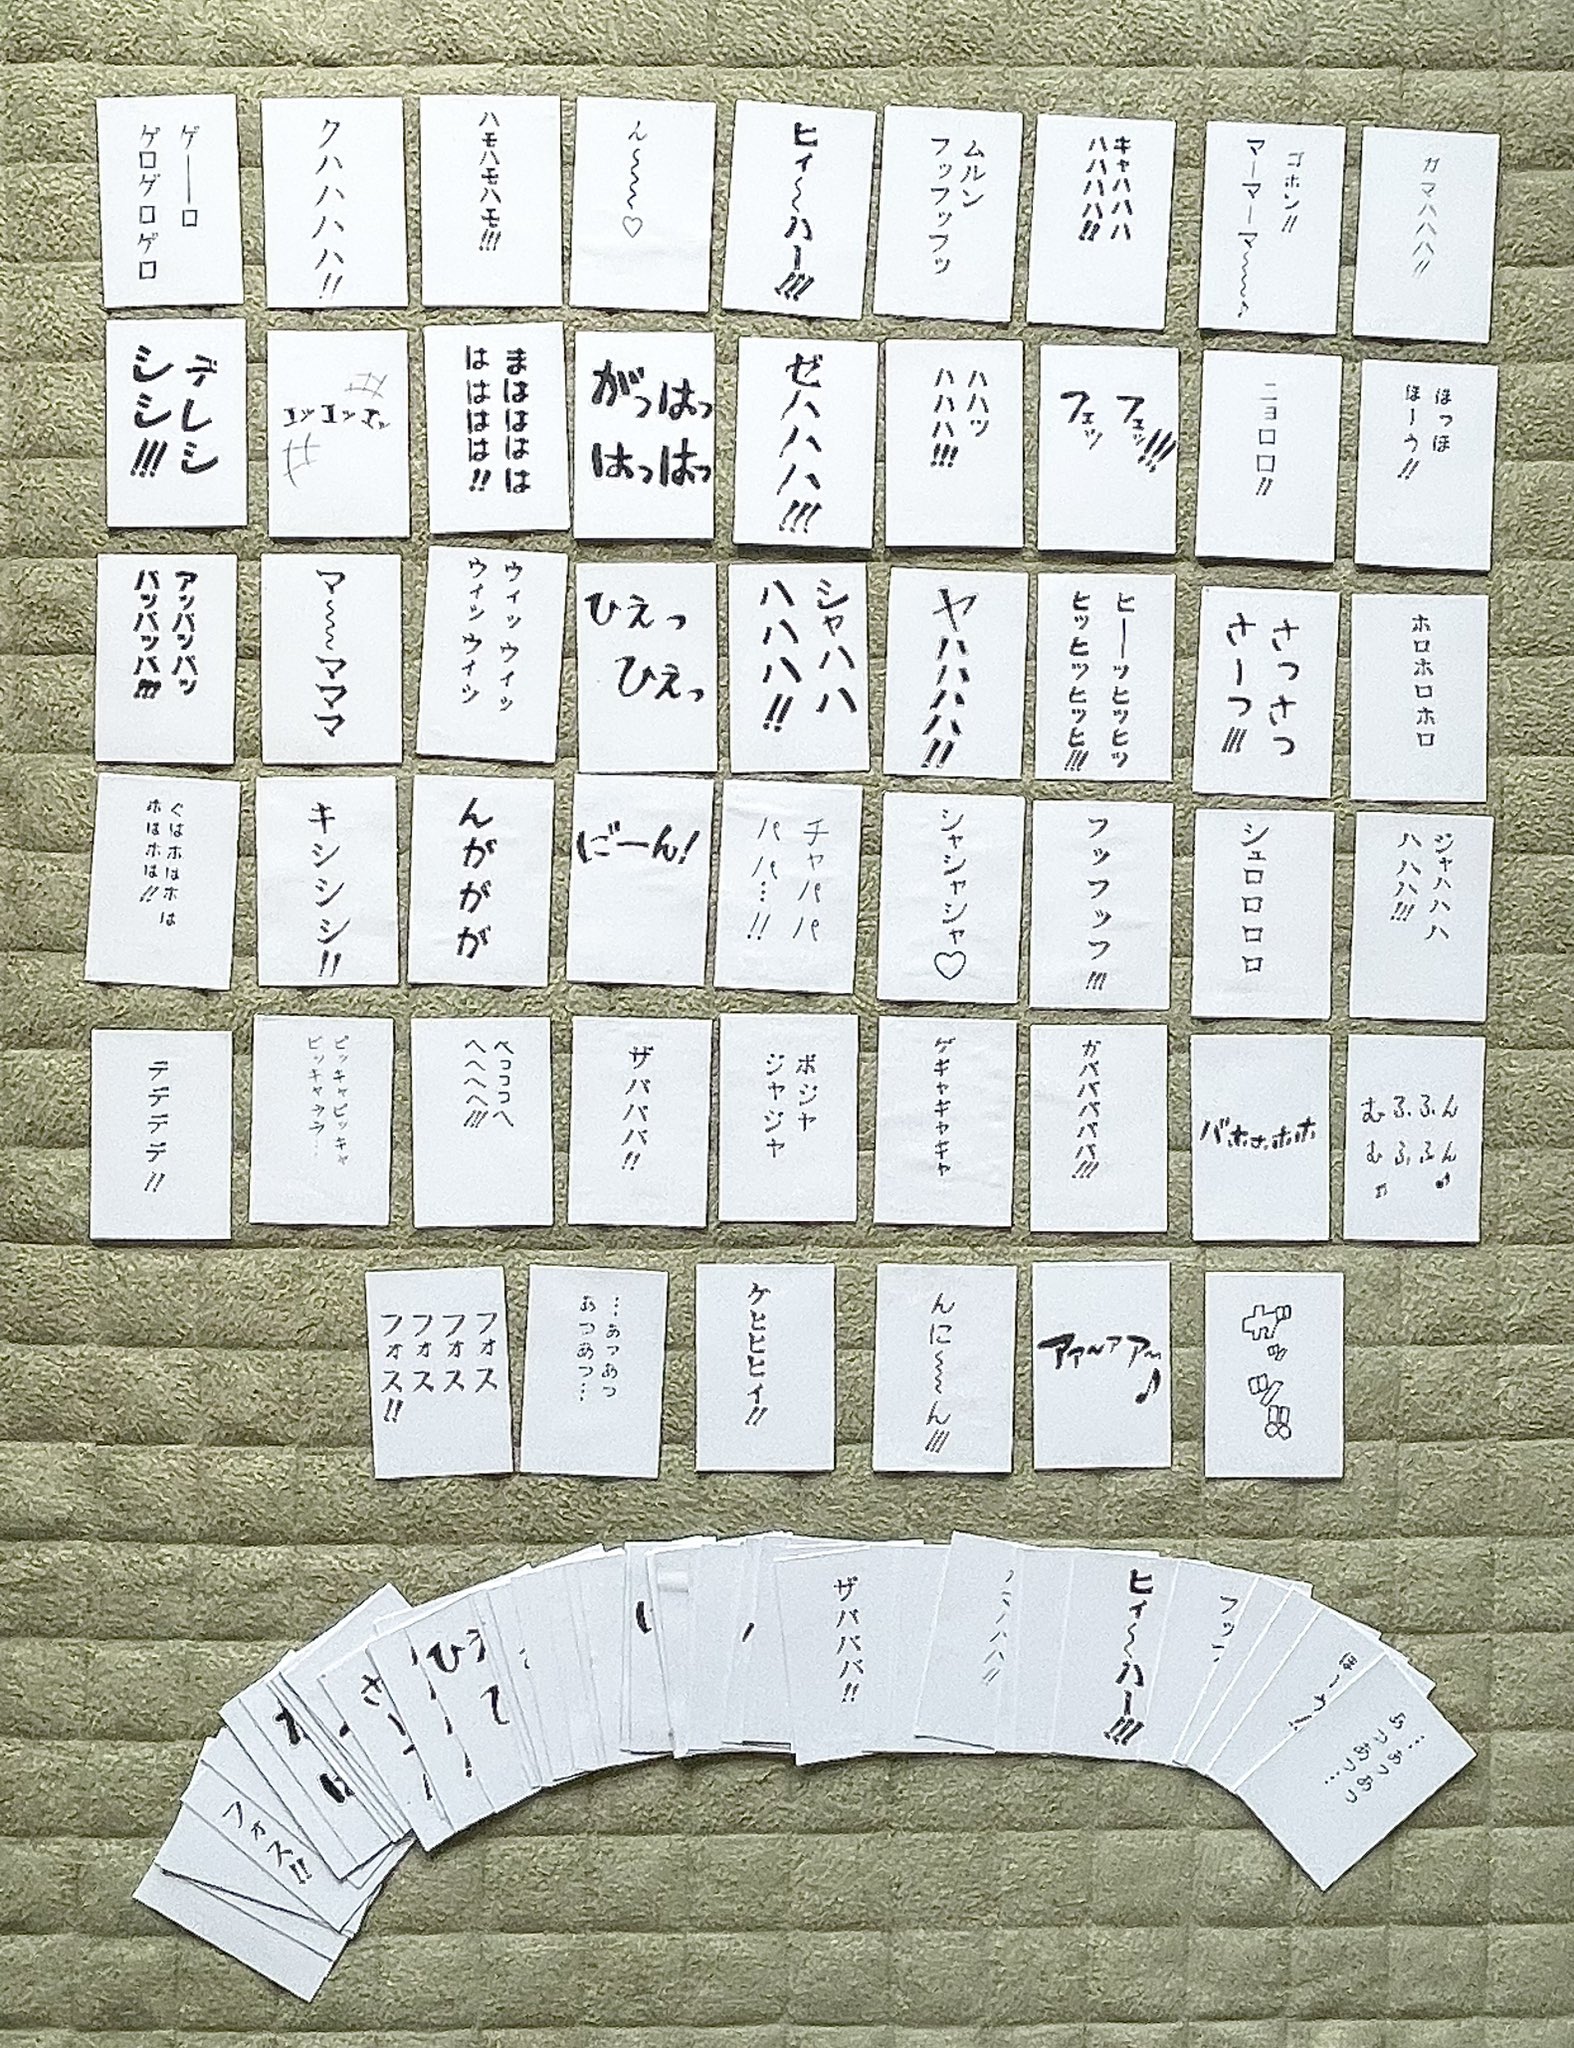 ゲーーロ
ゲロゲロゲロ
クハハハハ!!
ハモハモハモ!!!
ん〜〜〜♡
ヒィ〜〜ハー!!!
ムルン
フッフッフッ
キャハハハ
ハハハハ!!
ゴホン!!
マーマーマーマ〜〜〜♪
ガマハハハ!!
デレシ
シシシ!!!
まはははは
はははは!!
がっはっ
はっはっ
ゼハハハハ!!!
ハハッ
ハハハ!!!
フェッ
フェッ!!!
ニョロロロ!!
ほっほ
ほーう!!
アッバッバッ
バッバッバ!!!
マ〜〜〜ママママ
ウィッウィッ
ウィッウィッ
ひえっ
ひえっ
シャハハ
ハハハ!!
ヤハハハハ!!
ヒーーッヒッヒッ
ヒッヒッヒッヒ!!!
さっさっ
さーっ!!!
ホロホロホロ
ぐはホはホは
ホはホは!!
キシシシシ!!
んががが
にーん!
チャパパ
パパ…!!
シャシャシャ♡
フッフッフ!!!
シュロロロロ
ジャハハハ
ハハハ!!!
デデデデデ!!
ピッキャピッキャ
ピッキャララ…
ペコココヘ
ヘヘヘヘ!!!
ザババババ!!
ボジャ
ジャジャ
ゲギャギャギャ
ガバババババ!!!
バホホホホ
むふふん
むふふん
♫ ♪
フォス
フォス
フォス
フォス!!
…あっあっ
あっあっ…
ケヒヒヒィ!!
んに〜〜〜ん!!!
アァ〜ァア〜
♪
ザババババ!!
ヒィ〜〜ハー!!!
フォス!!
…あっあっ
あっあっ…